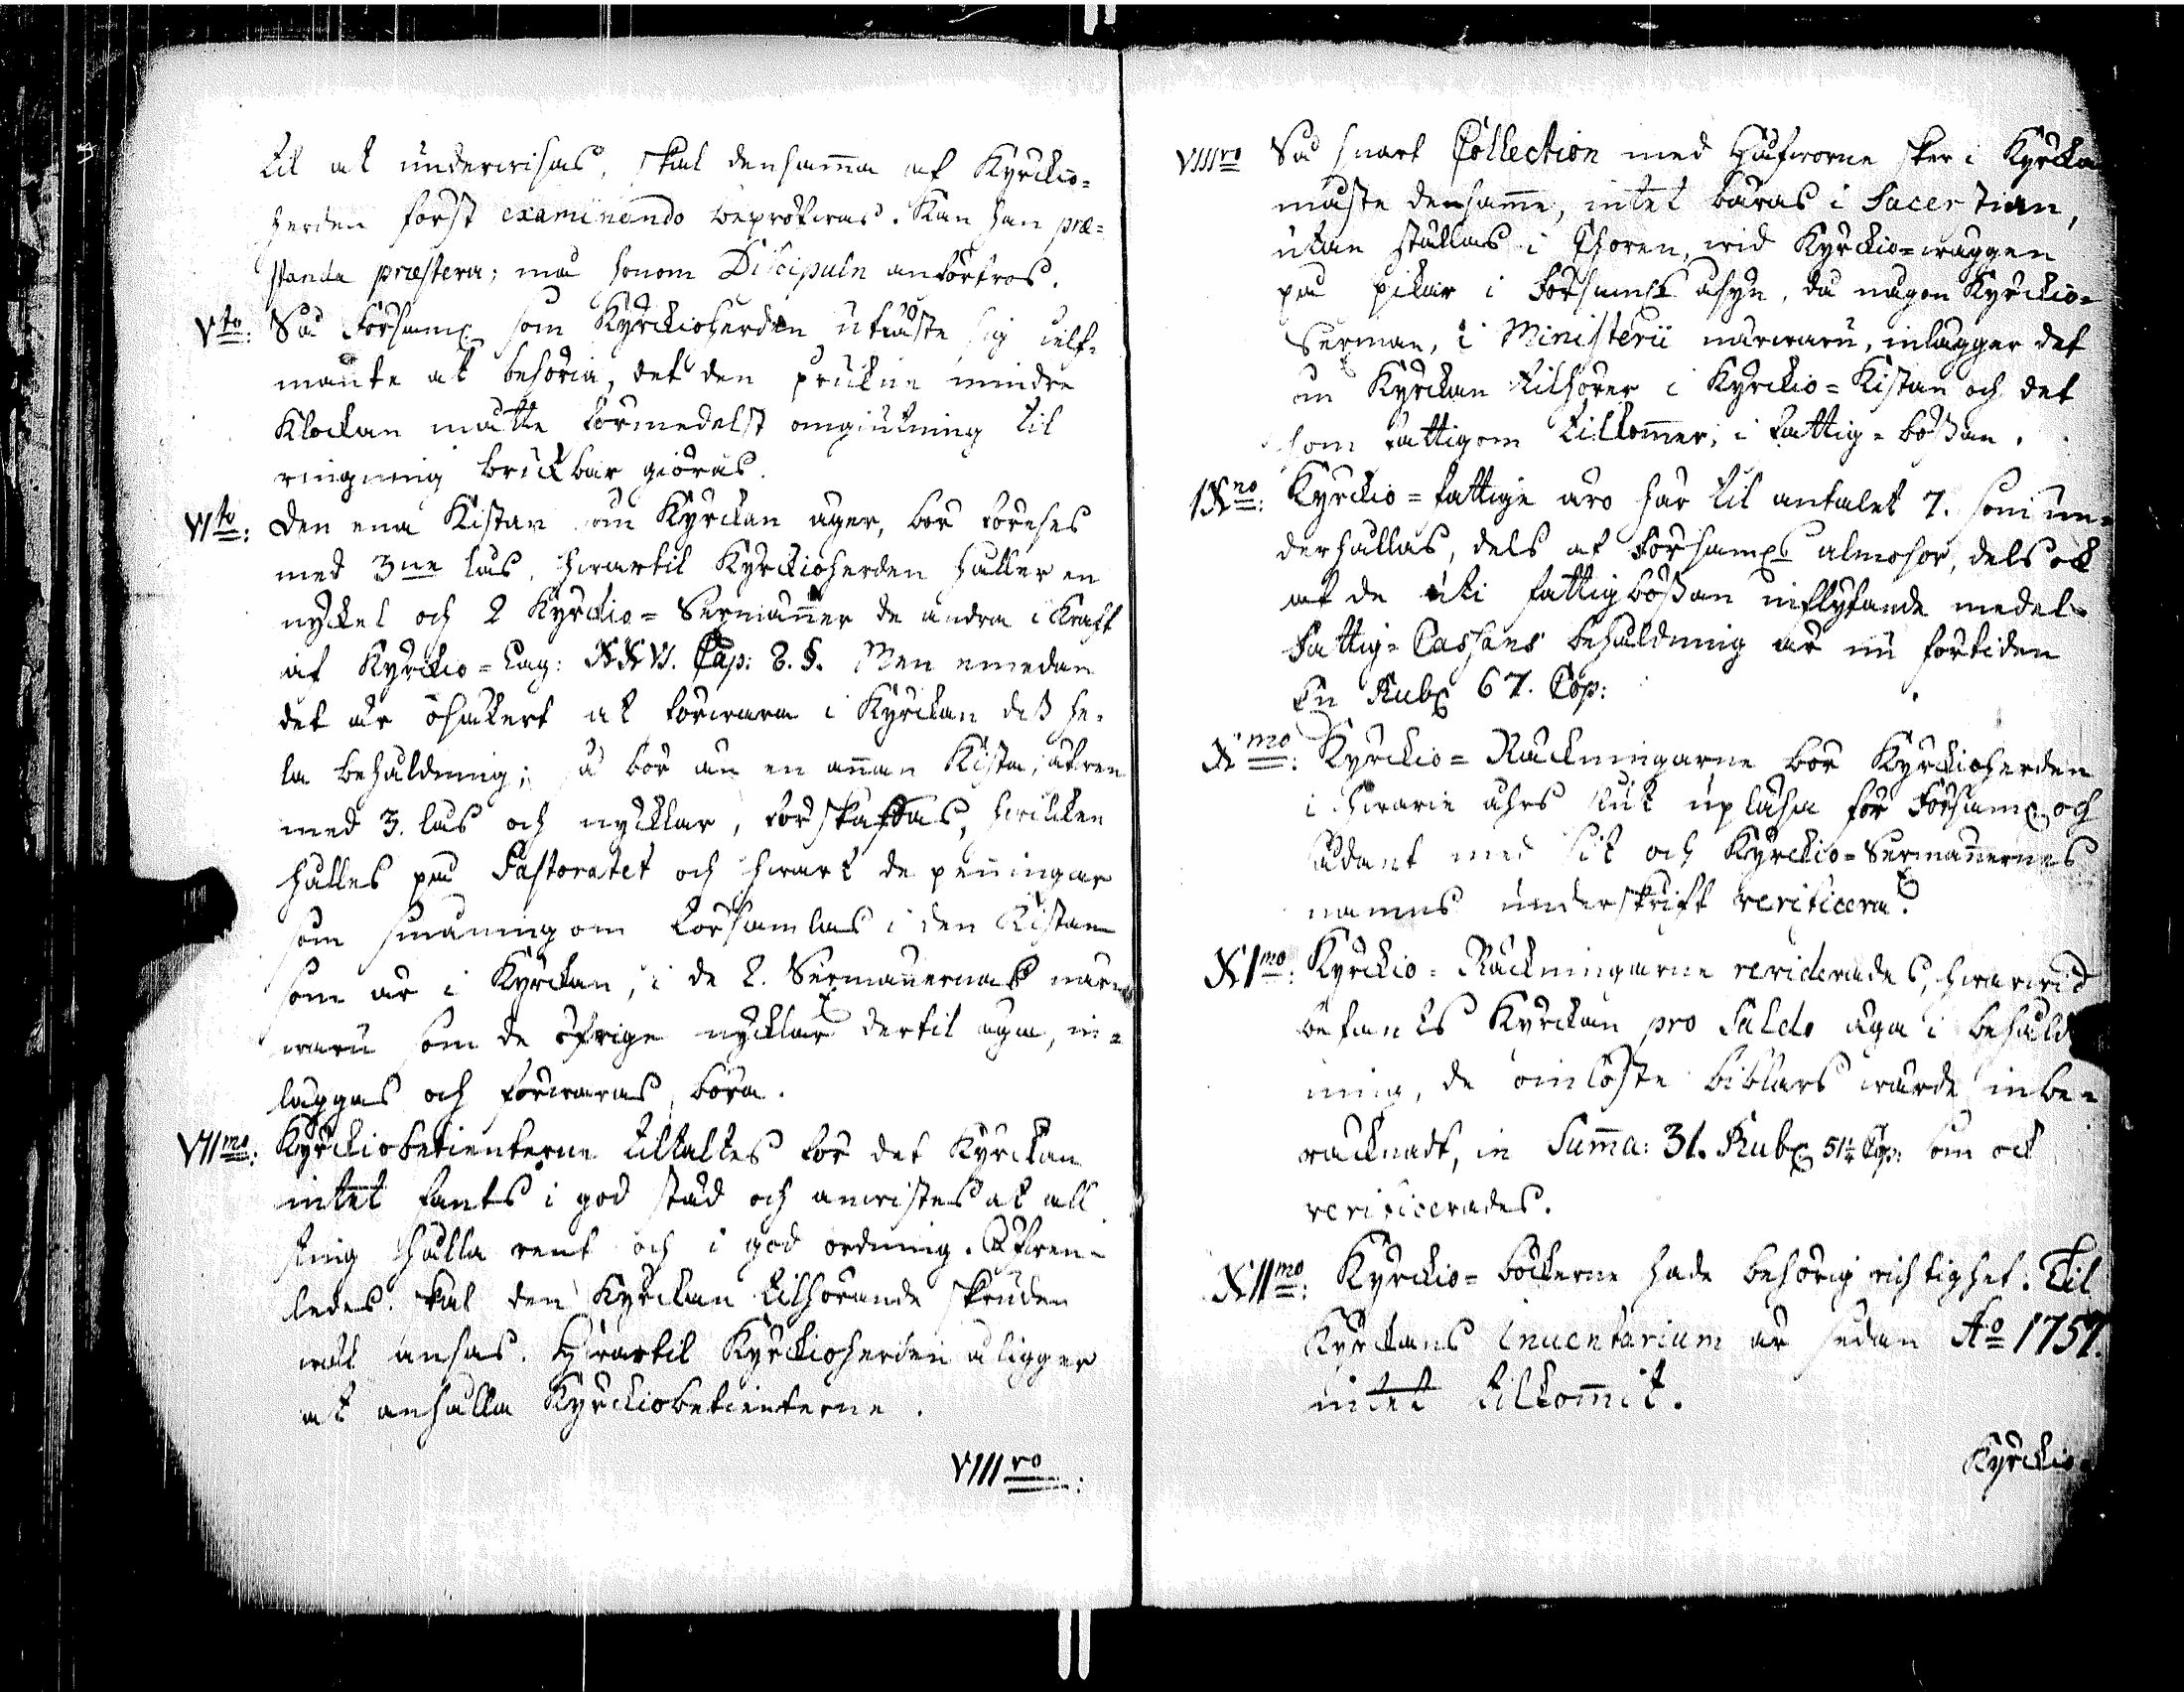 til at underwisas, skal densam̄a af Kyrckio=
herden först examinando bepröfwas. Kan han præ=
standa præstera; må honom Discipuln anförtros.
Vto: Så Församl. som Kyrckioherden utlåste sig
måtte at behöria, det den spruckne mindre
Klockan måtte förmedelst omgiutning til
ringning brukbar giöras.
VIto: Den ena Kistan som Kyrckan äger, bör förses
med 3ne lås, hwartil Kyrckioherden håller en
nyckel och 2 Kyrckio=Sexmän̄er de andra i Kraft
af Kyrckio=Lag: XXVI. Cap: 8. §. Men emedan
det är osäkert at förwara i Kyrckan deß he=
la behåldning; så bör än en an̄an Kista, äfwen
med 3. lås och nycklar, förskaffas, hwilcken
hålles på Pastoratet och hwart de pen̄ingar
som småningom församlas i den Kistan
som är i Kyrckan, i de 2. Sexmän̄ernas när=
waru som de öfrige nycklar dertil äga, in=
läggas och förwaras böra.
VIImo: Kyrckiobetienterne tiltaltes för det Kyrckan
intet fants i god städ och anwistes at all
ting hålla rent och i god ordning. Äfwen=
ledes skal den Kyrckan tilhörande skruden
wäl ansas. Hwartil Kyrckioherden åligger
at anhålla Kyrckiobetienterne.
VIIIvo:
VIIIvo Så snart Collection med Håfwarne sker i Kyrckan
måste densam̄e, intet bäras i Sacerstian,
utan ställas i Choren, wid Kyrckio=wäggen
på pikar i Församls åsyn, då någon Kyrckio=
Sexman, i Ministerii närwaru, inlägger det
som Kyrckan tilhörer i Kyrckio=Kistan och det
som fattigom tilkom̄er, i fattig=bößan.
IXno: Kyrckio=fattige äro här til antalet 7. som un=
derhållas, dels af Församls almosor, dels ock
af de uti fattigbößan inflytande medel.
Fattig=Cassans behåldning är nu förtiden
En Rubl. 67. Cop:
Xmo: Kyrckio=Räckningarne bör Kyrckioherden
i hwarie åhrs slut upläsa för Församl. och
sådant med sit och Kyrckio=Sexmän̄ernes
namns underskrift verificera.
XImo: Kyrckio=Räckningarne reviderades, hwarwid
befants Kyrckan pro Saldo äga i behåld
ning, de oinlöste biblars wärde inbe=
räcknadt, in Sum̄a: 31. Rubl. 51½ Cop: som ock
verificerades.
XIImo: Kyrckio=böckerne hade behörig richtighet. Til
Kyrckans Inventarium är sedan Ao 1757.
intet tilkom̄it.
Kyrckio=